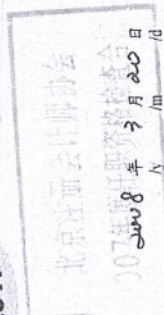 北京注册会计师协会
2007年度任职资格检查合
2008年3月20日
/y /m /d